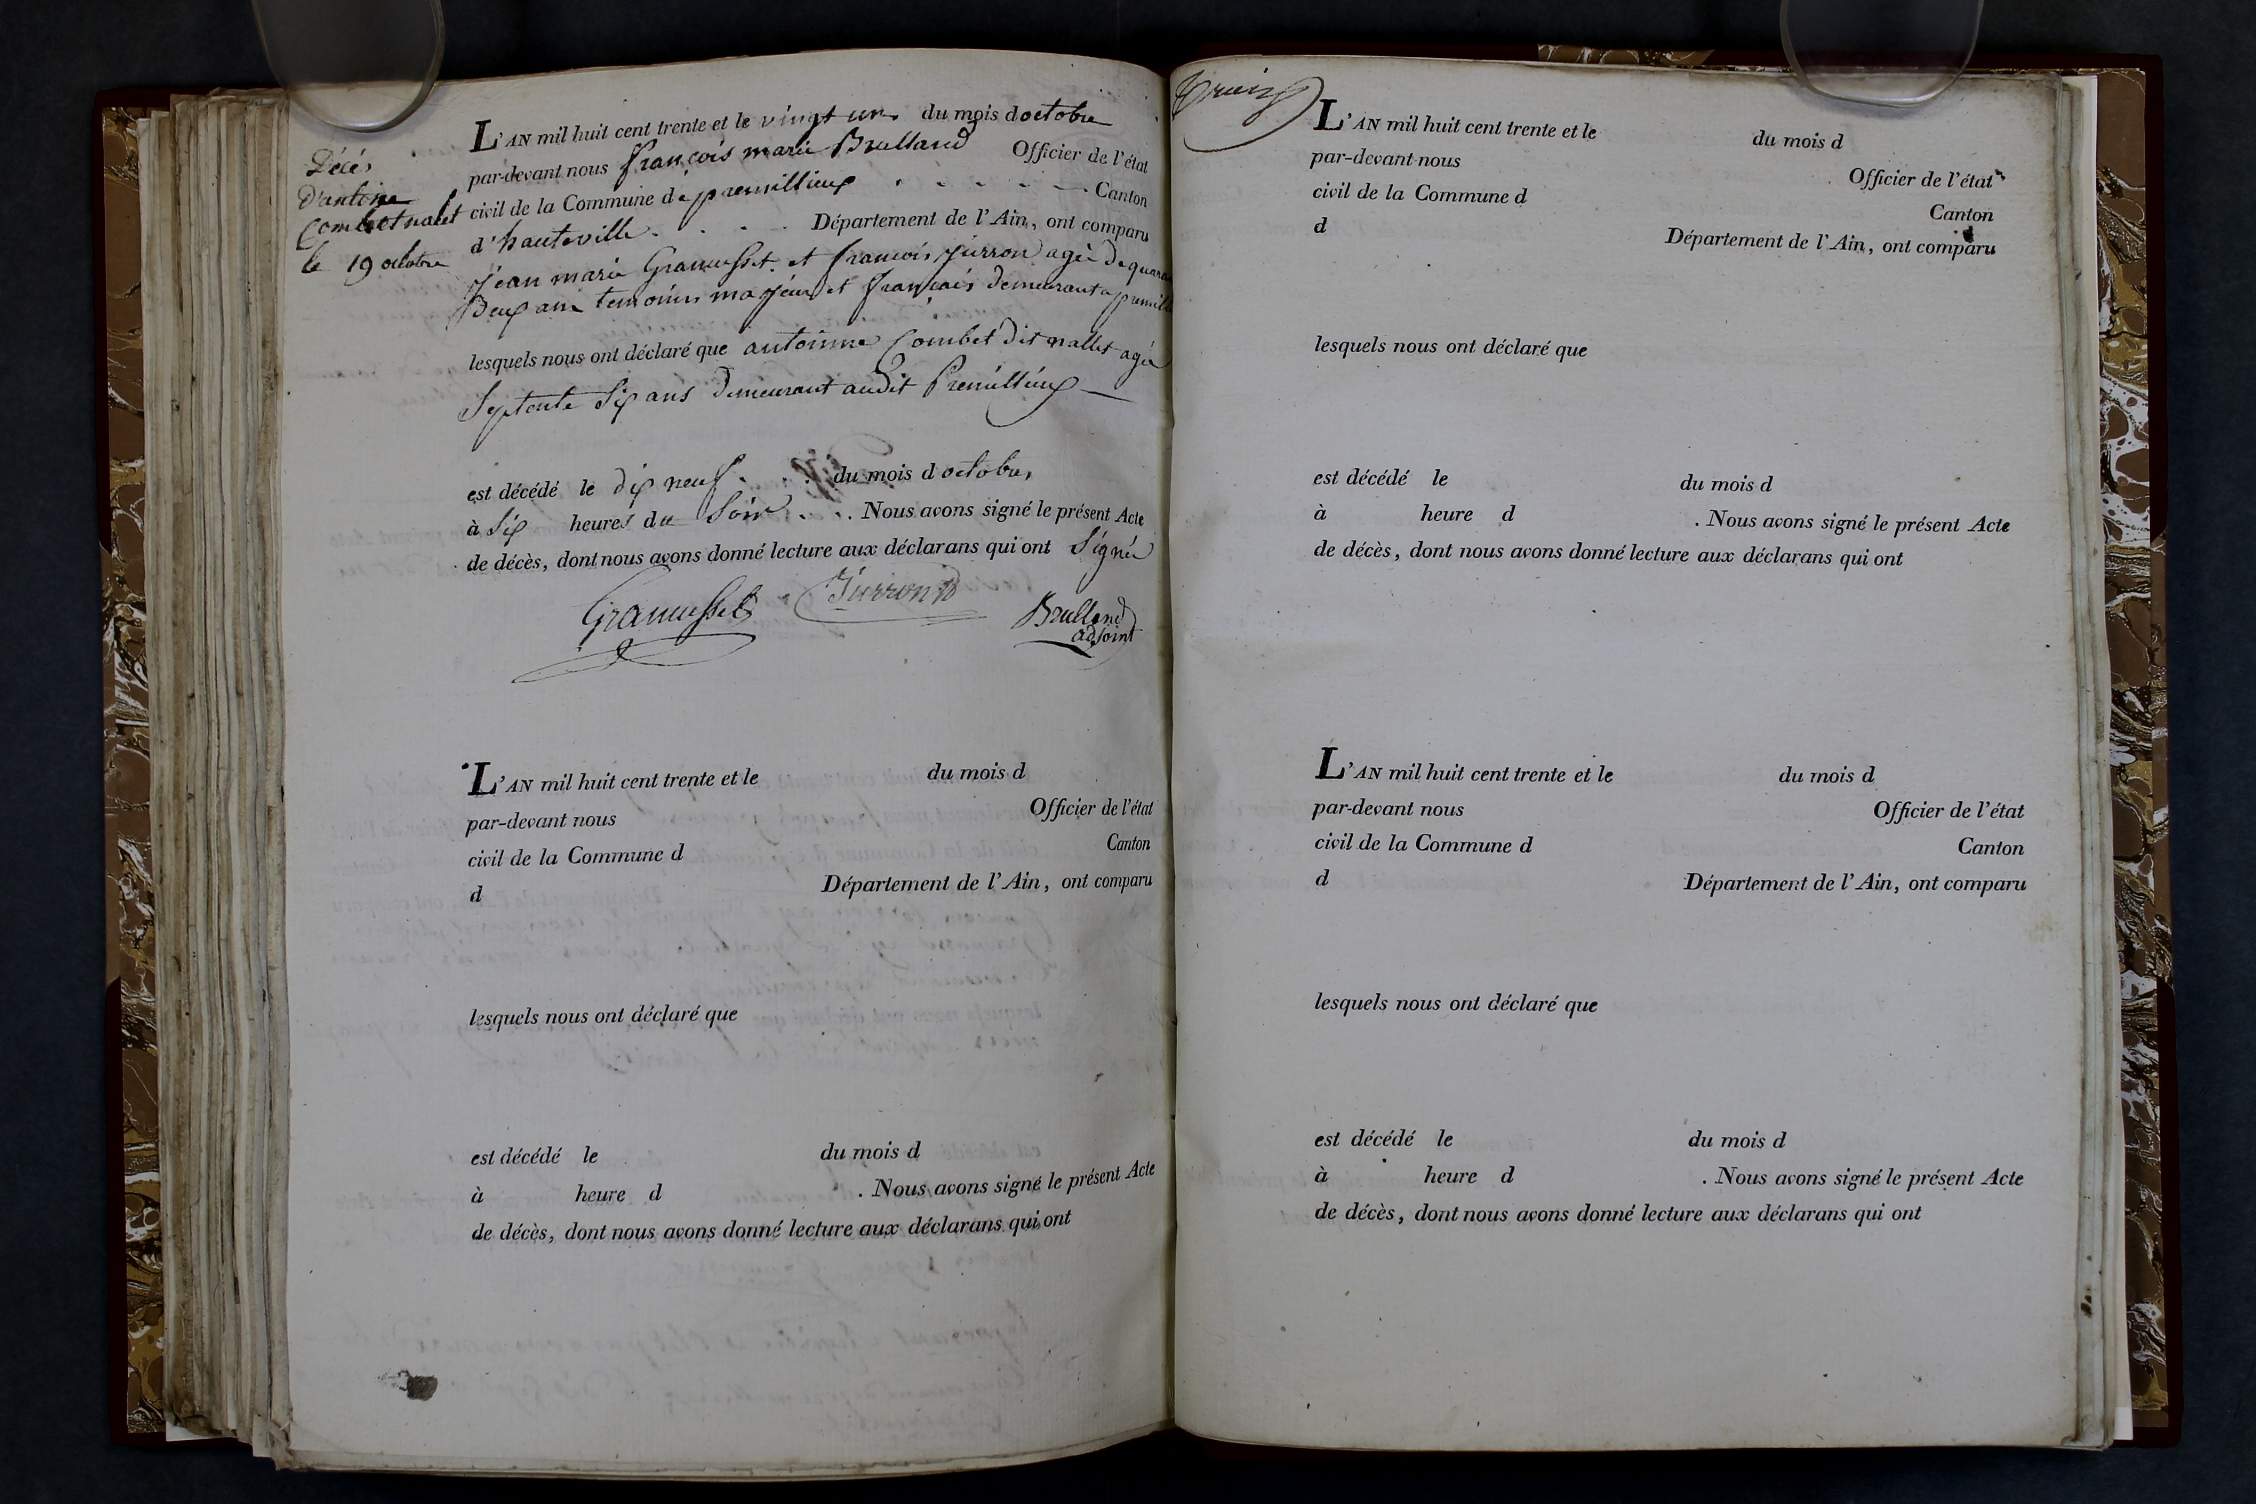 Décés
D'antoine
Combet nalet
le 19 octobre
L'AN mil huit cent trente et le vingt un du mois d octobre
par-devant nous françois marie Brulland Officier de l'état
civil de la Commune de premillieux Canton
d'hauteville Département de l'Ain, ont comparu
jean marie Gramusset et francois jurron agé de quaran
Deux ans temoins majeur et français demeurant a premil
lesquels nous ont déclaré que antoinne Combet Dit nallet agé
Septente Six ans Demeurant audit Premillieux
est décédé le dix neuf du mois d octobre,
à Six heures du Soir . Nous avons signé le présent Acte
de décès, dont nous avons donné lecture aux déclarans qui ont Signé
Gramusset Jurron Brulland
adjoint
L'AN mil huit cent trente et le du mois d
par-devant nous Officier de l'état
civil de la Commune d Canton
d Département de l'Ain, ont comparu
lesquels nous ont déclaré que
est décédé le du mois d
à heure d . Nous avons signé le présent Acte
de décès, dont nous avons donné lecture aux déclarans qui ont
L'AN mil huit cent trente et le du mois d
par-devant nous Officier de l'état
civil de la Commune d Canton
d Département de l'Ain, ont comparu
lesquels nous ont déclaré que
est décédé le du mois d
à heure d . Nous avons signé le présent Acte
de décès, dont nous avons donné lecture aux déclarans qui ont
L'AN mil huit cent trente et le du mois d
par-devant nous Officier de l'état
civil de la Commune d Canton
d Département de l'Ain, ont comparu
lesquels nous ont déclaré que
est décédé le du mois d
à heure d . Nous avons signé le présent Acte
de décès, dont nous avons donné lecture aux déclarans qui ont